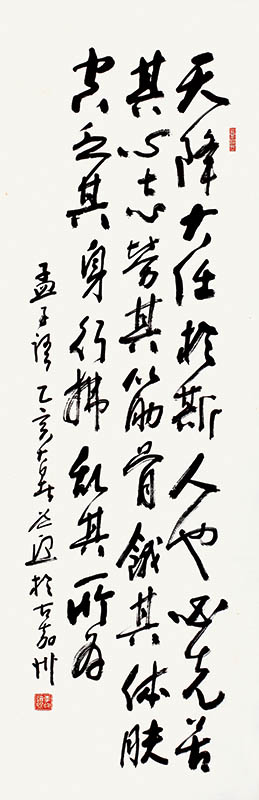 天降大任於斯人也必先苦
其心志勞其筋骨餓其体膚
空乏其身行拂乱其所為
孟子語 乙亥大暑 於古嘉州